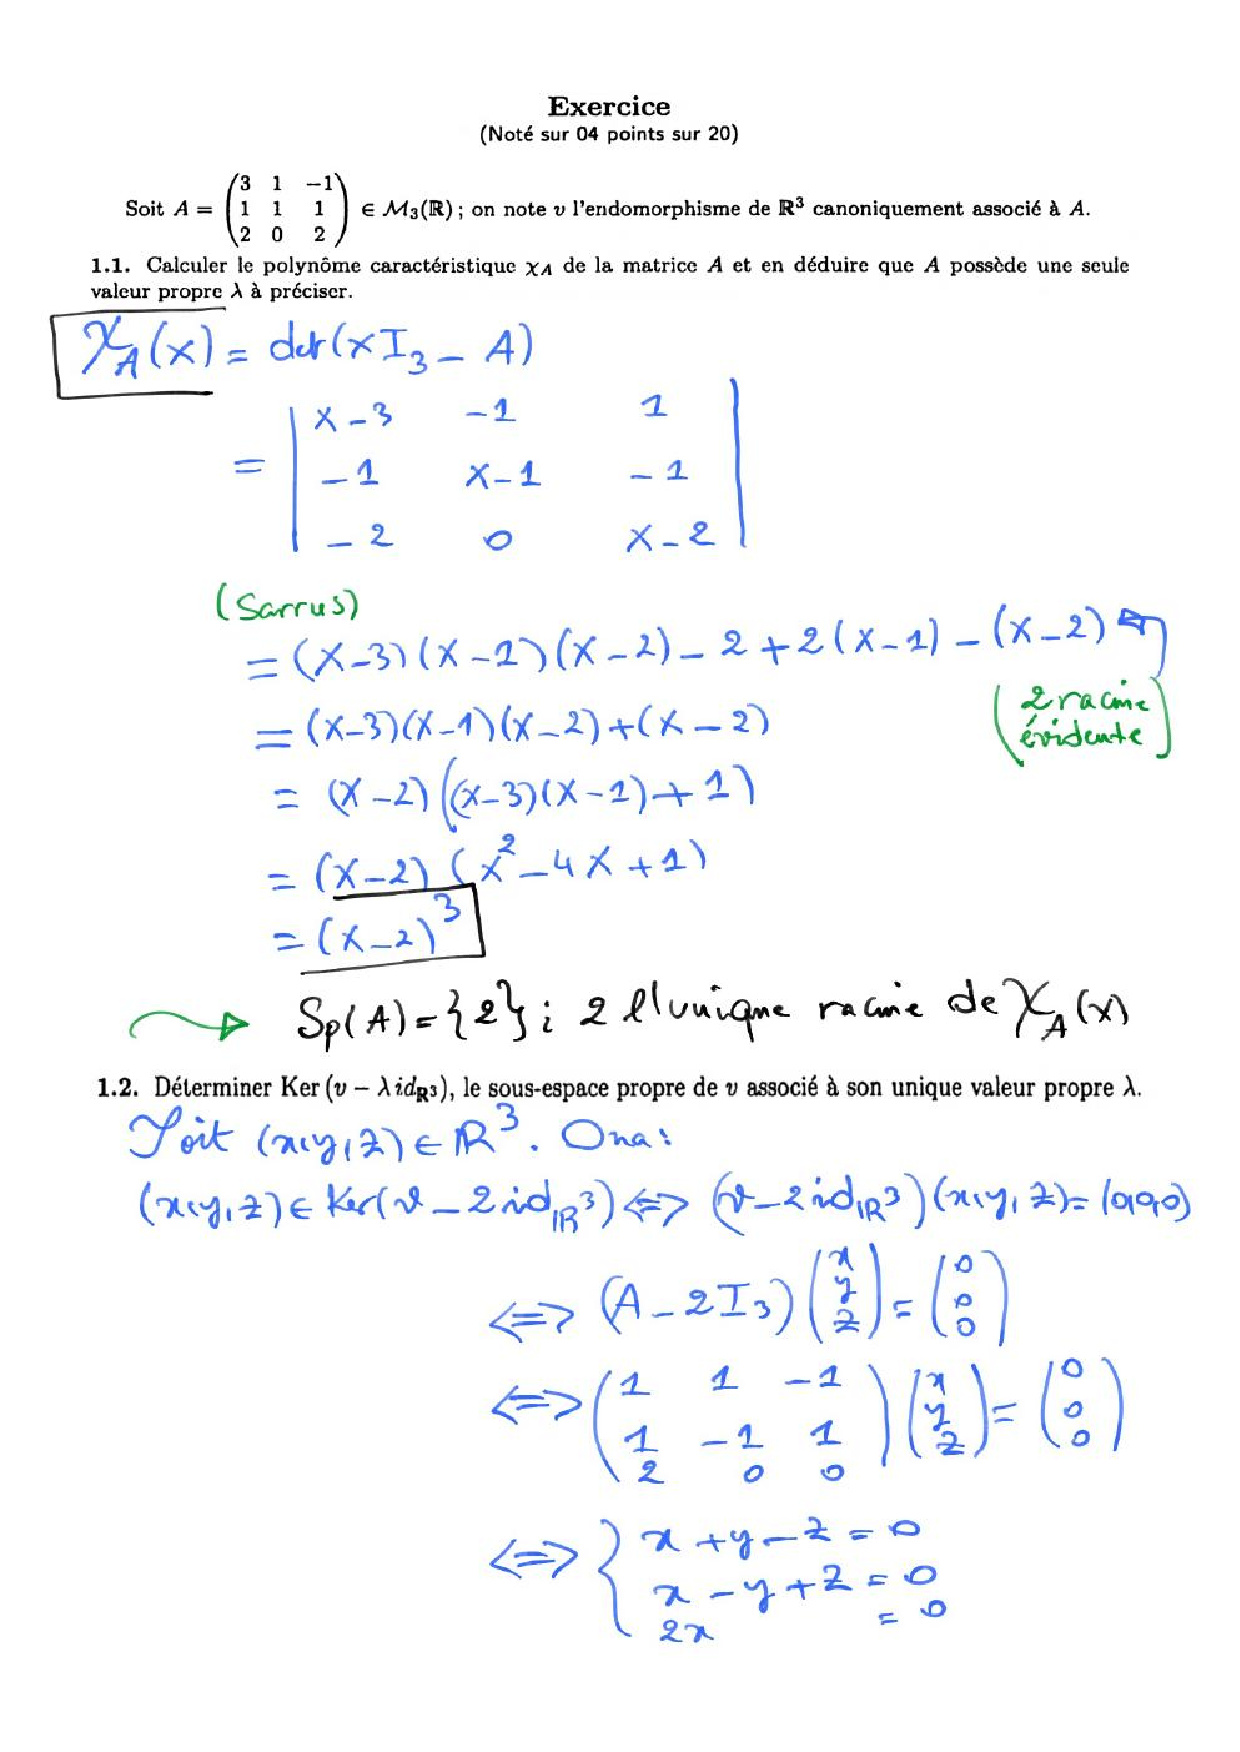 Exercice
(Noté sur 04 points sur 20)
Soit A = \begin{pmatrix} 3 & 1 & -1 \\ 1 & 1 & 1 \\ 2 & 0 & 2 \end{pmatrix} ∈ M₃(ℝ) ; on note v l'endomorphisme de ℝ³ canoniquement associé à A.
1.1. Calculer le polynôme caractéristique χ_A de la matrice A et en déduire que A possède une seule
valeur propre λ à préciser.
χ_A(X) = det(XI₃ - A)
= \begin{vmatrix} X-3 & -1 & 1 \\ -1 & X-1 & -1 \\ -2 & 0 & X-2 \end{vmatrix}
(Sarrus)
= (X-3)(X-1)(X-2) - 2 + 2(X-1) - (X-2)
= (X-3)(X-1)(X-2) + (X-2)
(2 racine
évidente)
= (X-2)((X-3)(X-1)+1)
= (X-2)(X²-4X+1)
= (X-2)³
Sp(A) = {2} ; 2 l'unique racine de χ_A(X)
1.2. Déterminer Ker (v − λ id_{ℝ³}), le sous-espace propre de v associé à son unique valeur propre λ.
Soit (x,y,z) ∈ ℝ³. On a :
(x,y,z) ∈ Ker(v - 2id_{ℝ³}) ⟺ (v - 2id_{ℝ³})(x,y,z) = (0,0,0)
⟺ (A - 2I₃) \begin{pmatrix} x \\ y \\ z \end{pmatrix} = \begin{pmatrix} 0 \\ 0 \\ 0 \end{pmatrix}
⟺ \begin{pmatrix} 1 & 1 & -1 \\ 1 & -1 & 1 \\ 2 & 0 & 0 \end{pmatrix} \begin{pmatrix} x \\ y \\ z \end{pmatrix} = \begin{pmatrix} 0 \\ 0 \\ 0 \end{pmatrix}
⟺ { x + y - z = 0
x - y + z = 0
2x = 0